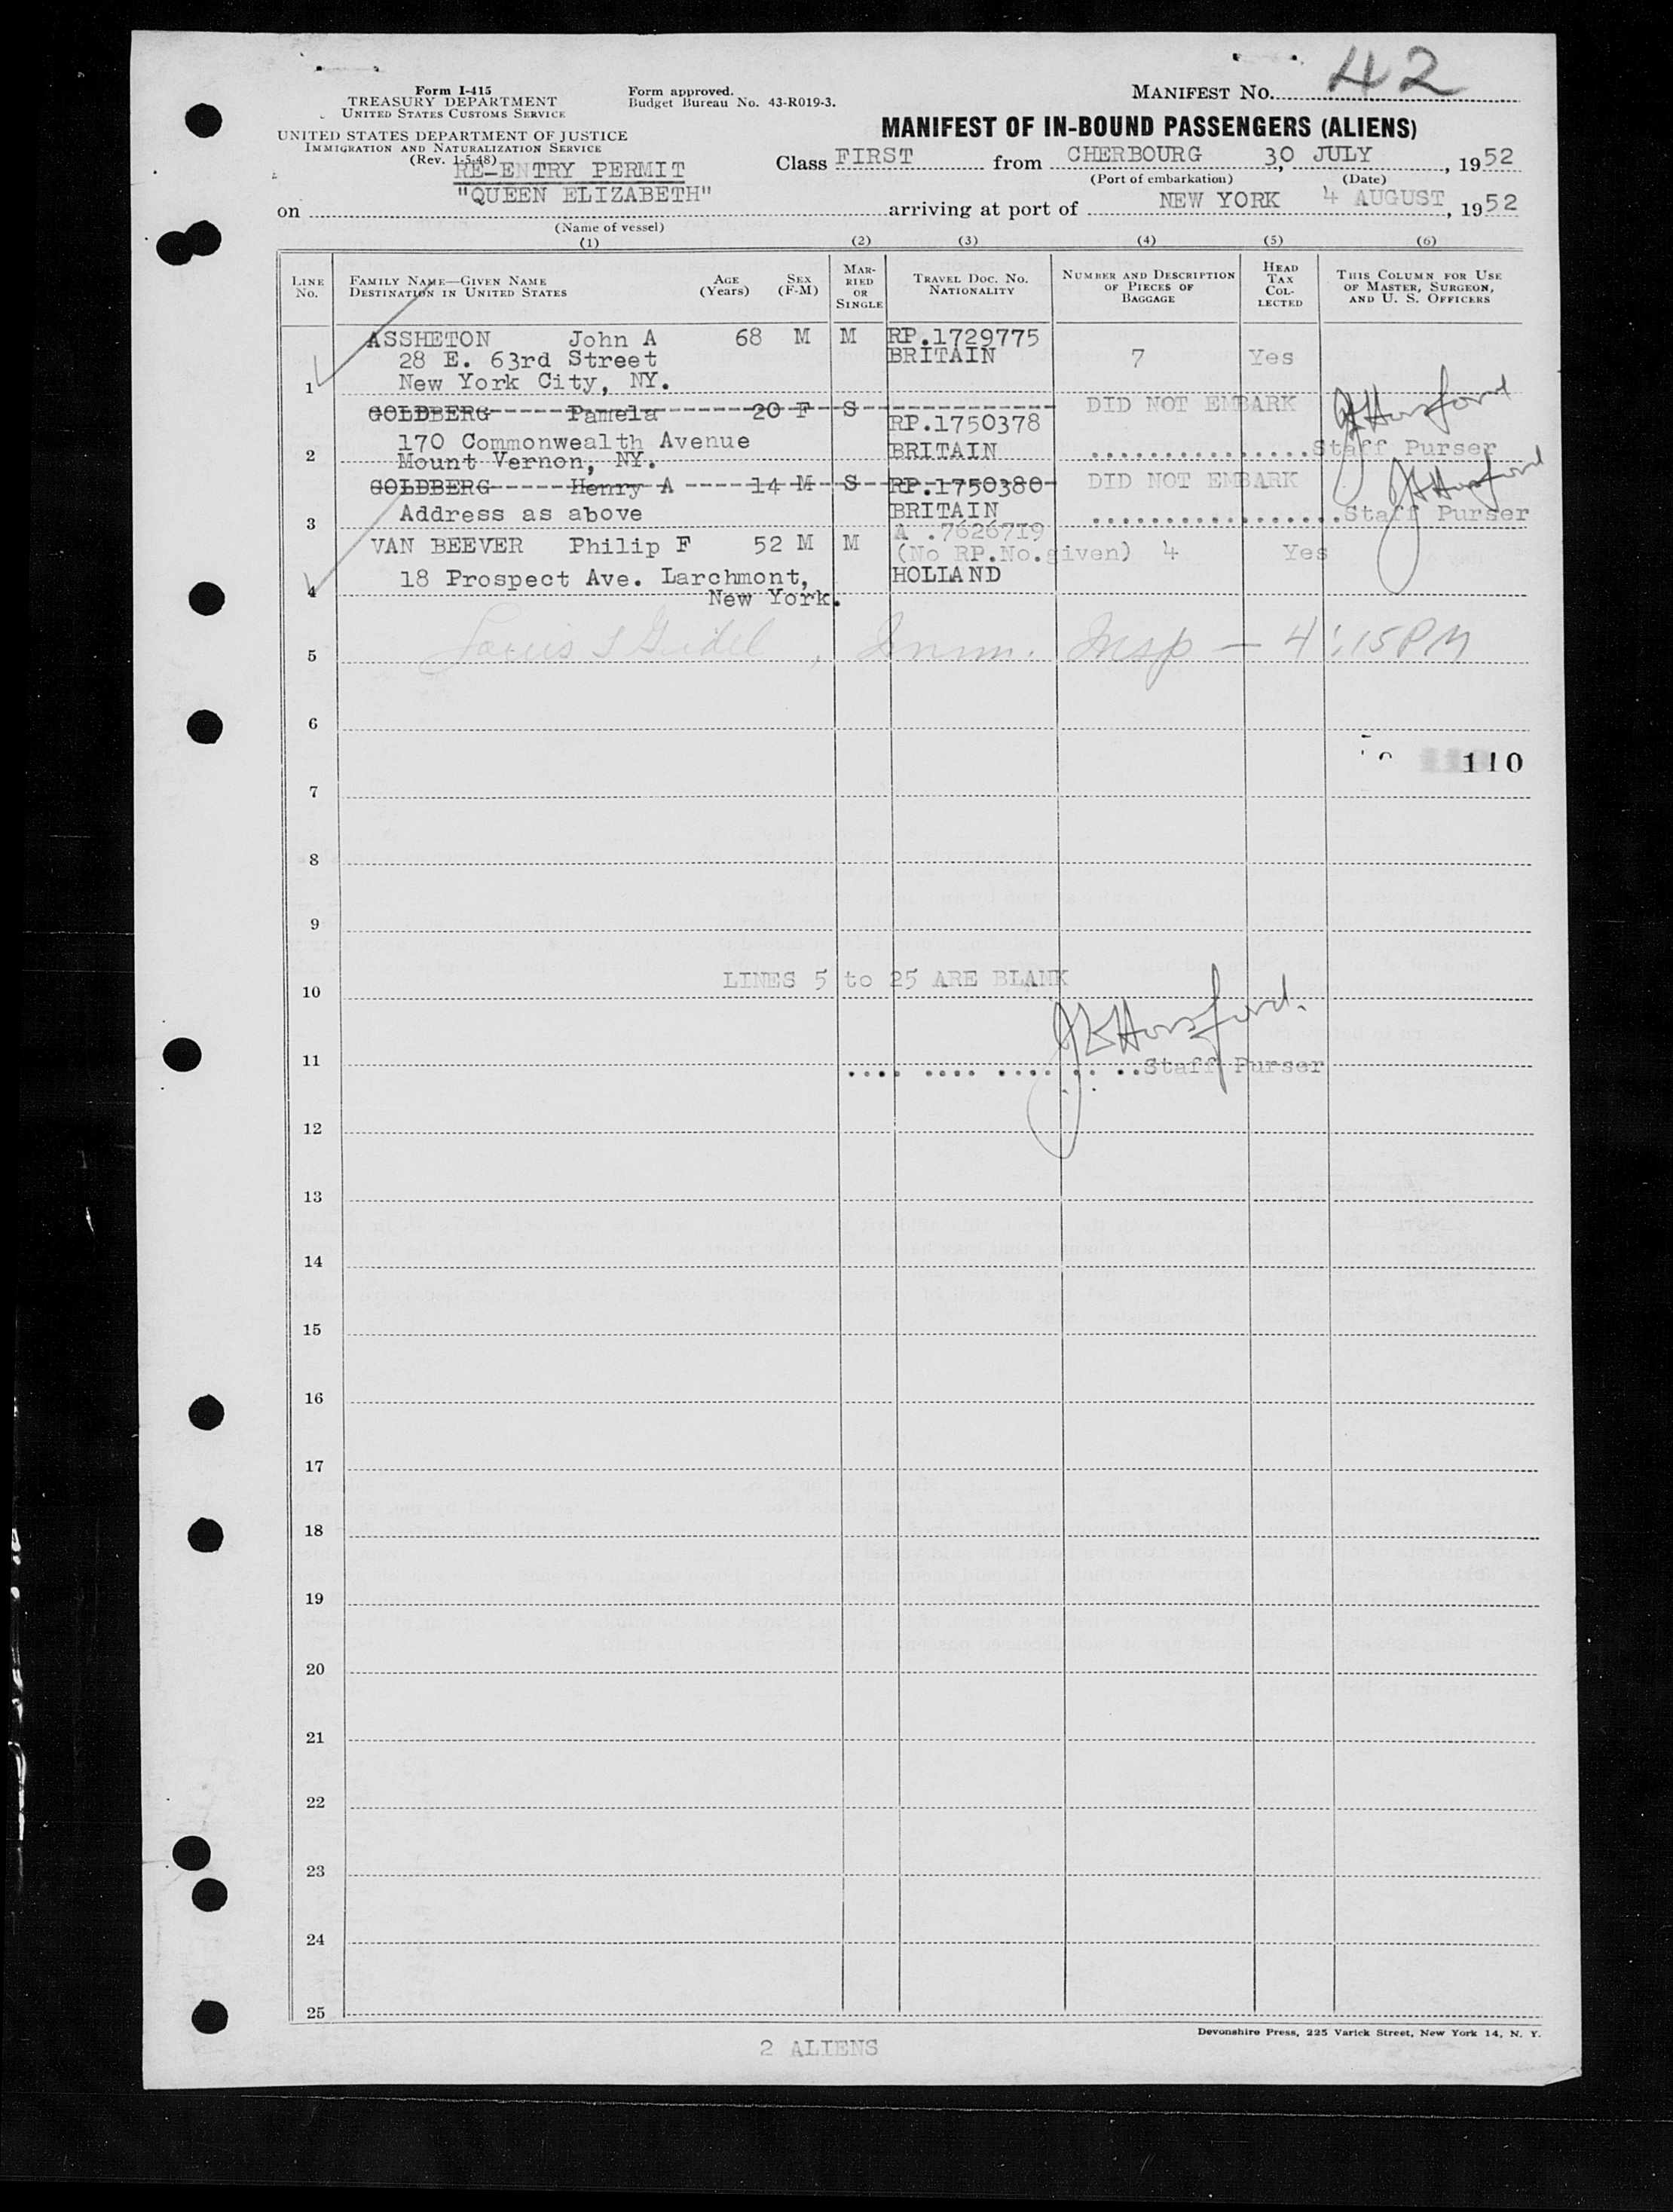 Form I-415
TREASURY DEPARTMENT
UNITED STATES CUSTOMS SERVICE
UNITED STATES DEPARTMENT OF JUSTICE
IMMIGRATION AND NATURALIZATION SERVICE
(Rev. 1-5-48)
Form approved.
Budget Bureau No. 43-R019-3.
MANIFEST NO. 42
MANIFEST OF IN-BOUND PASSENGERS (ALIENS)
RE-ENTRY PERMIT
Class FIRST from CHERBOURG 30 JULY, 1952
(Port of embarkation) (Date)
on "QUEEN ELIZABETH" arriving at port of NEW YORK 4 AUGUST, 1952
(Name of vessel)
(1) (2) (3) (4) (5) (6)
LINE NO. FAMILY NAME—GIVEN NAME DESTINATION IN UNITED STATES AGE (Years) SEX (F-M) MARRIED OR SINGLE TRAVEL DOC. NO. NATIONALITY NUMBER AND DESCRIPTION OF PIECES OF BAGGAGE HEAD TAX COLLECTED THIS COLUMN FOR USE OF MASTER, SURGEON, AND U. S. OFFICERS
ASSHETON John A 68 M M RP.1729775
28 E. 63rd Street BRITAIN 7 Yes
1 New York City, NY.
GOLDBERG Pamela 20 F S DID NOT EMBARK
RP.1750378
170 Commonwealth Avenue BRITAIN Staff Purser
2 Mount Vernon, NY.
GOLDBERG Henry A 14 M S RP.1750380 DID NOT EMBARK
3 Address as above BRITAIN Staff Purser
A .7626719
VAN BEEVER Philip F 52 M M (No RP.No.given) 4 Yes
4 18 Prospect Ave. Larchmont, HOLLAND
New York.
5 Louis Imm. Insp — 4:15 PM
6
110
7
8
9
LINES 5 to 25 ARE BLANK
10
11 Staff Purser
12
13
14
15
16
17
18
19
20
21
22
23
24
25
Devonshire Press, 225 Varick Street, New York 14, N. Y.
2 ALIENS